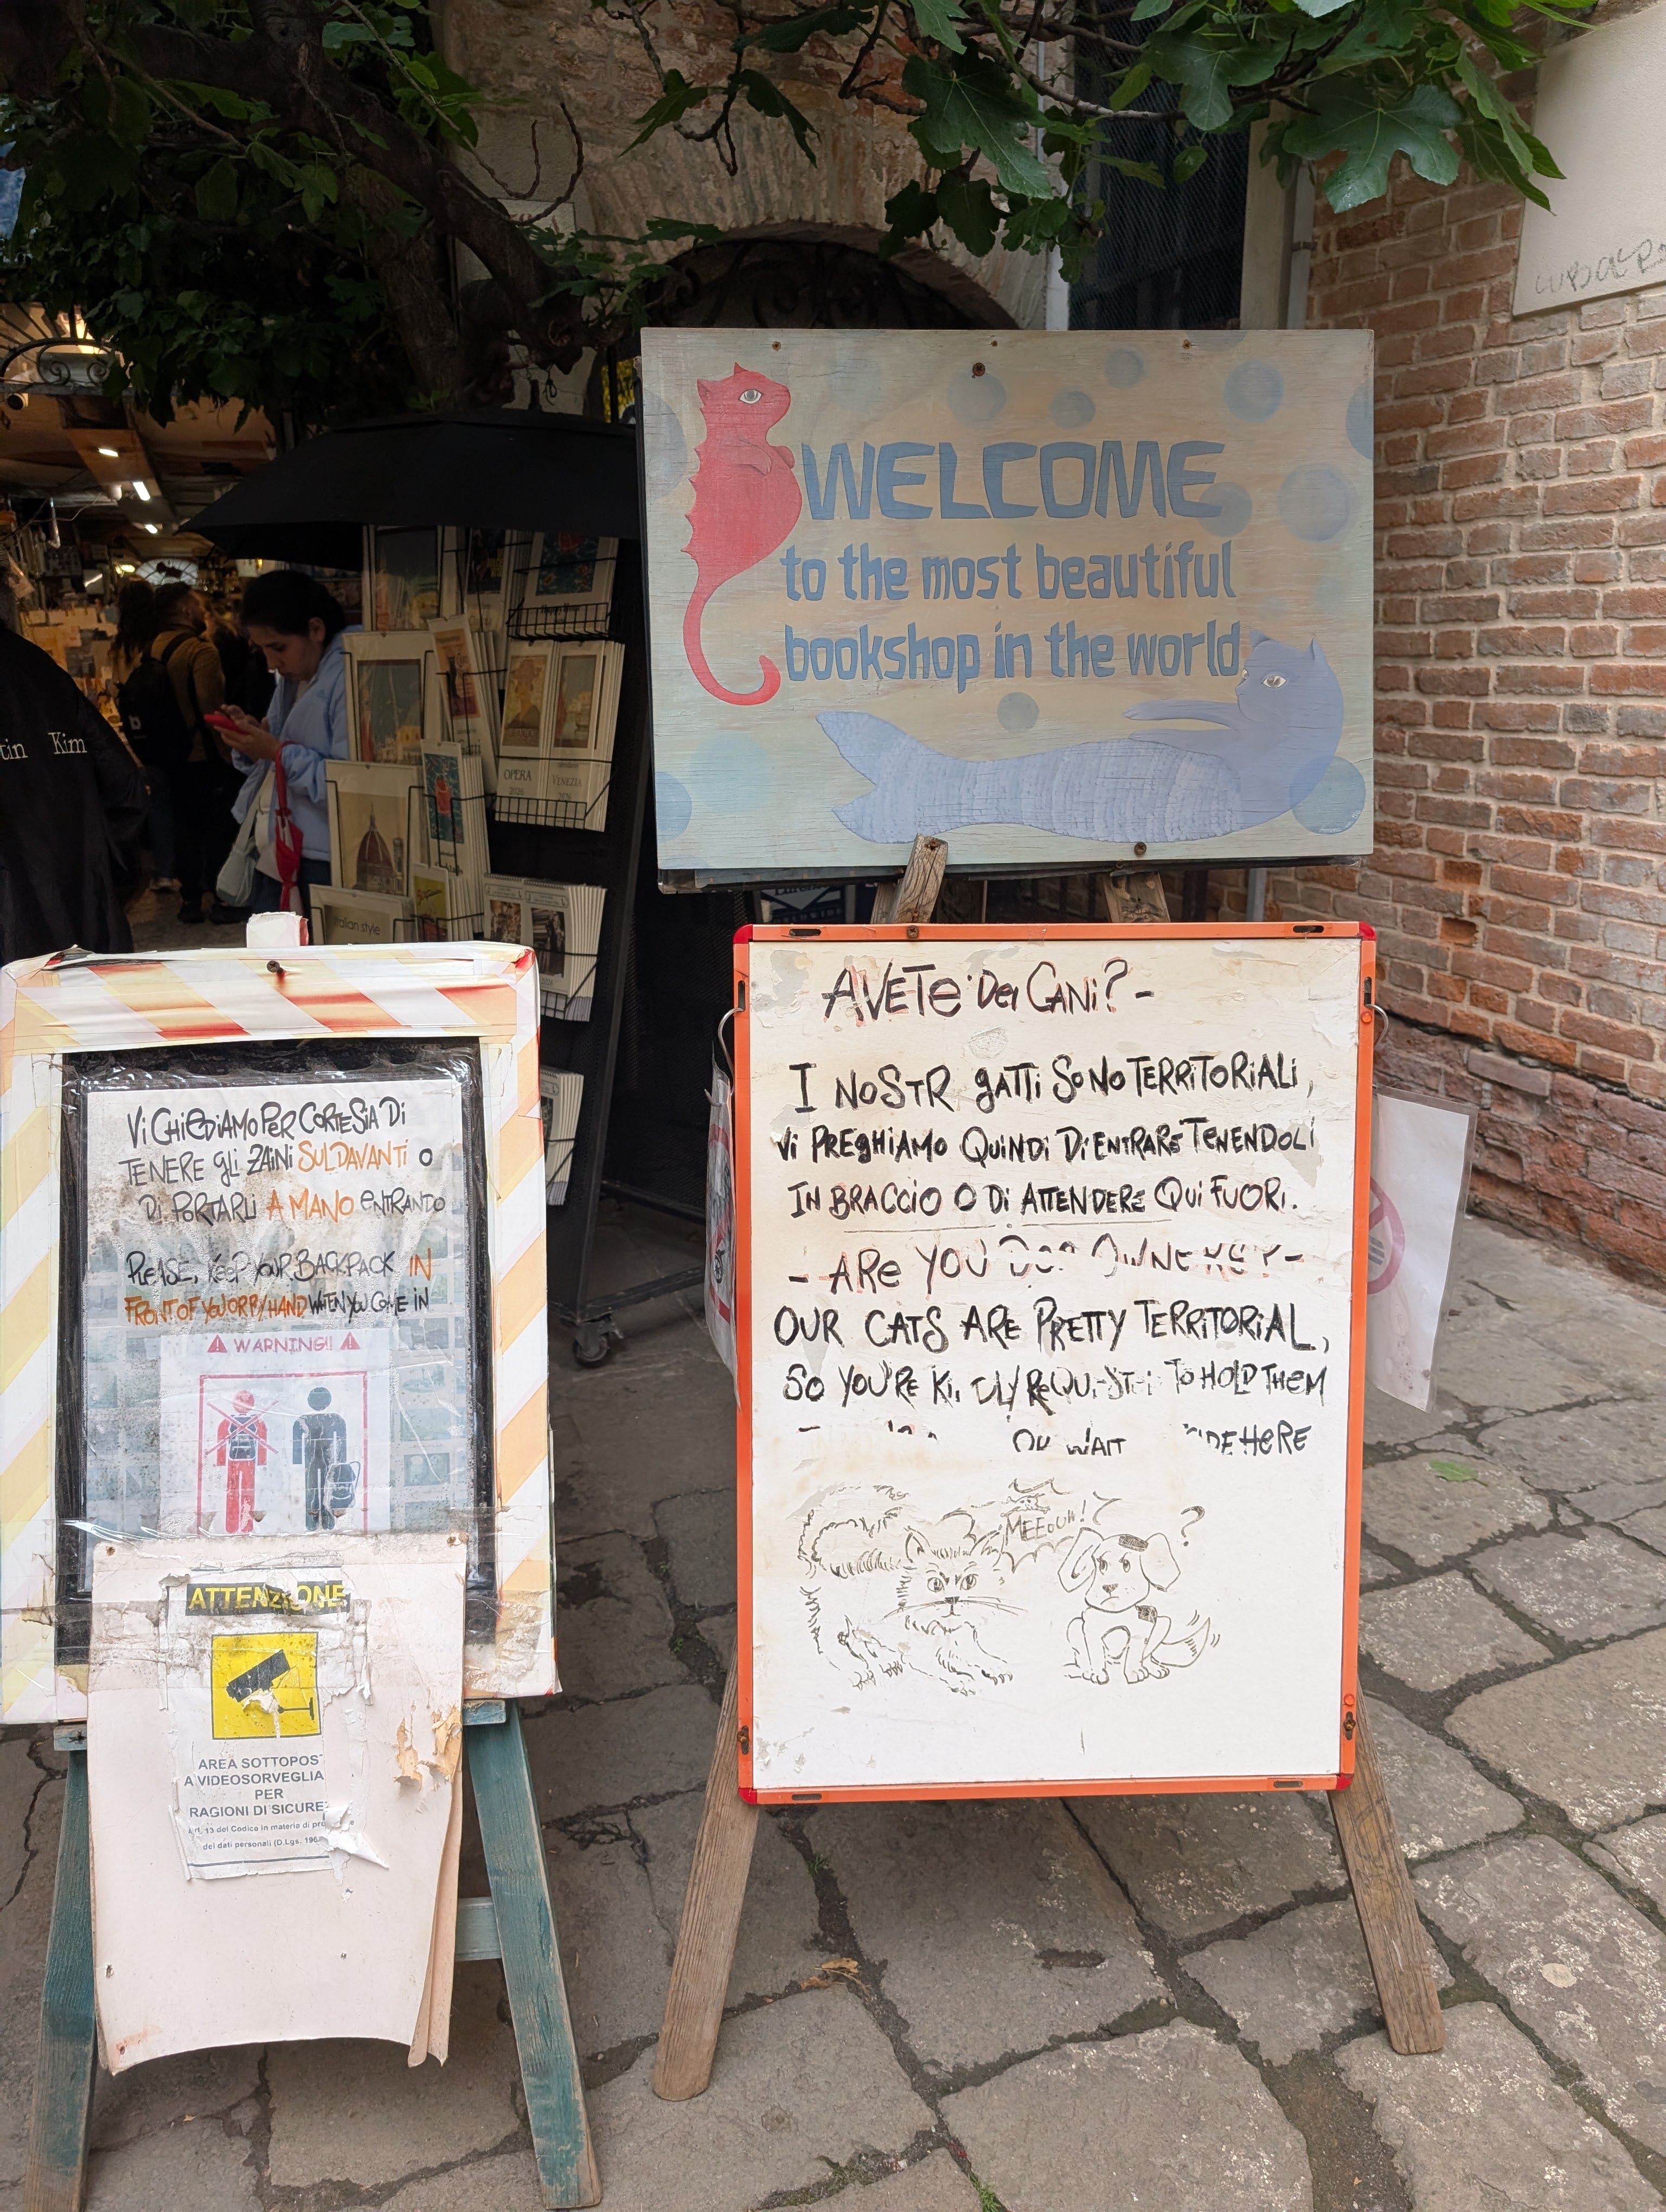 WELCOME
to the most beautiful
bookshop in the world
tin Kim
OPERA
2026
VENEZIA
Italian style
AVETE DEI CANI? -
I NOSTRI GATTI SONO TERRITORIALI,
VI PREGHIAMO QUINDI DI ENTRARE TENENDOLI
IN BRACCIO O DI ATTENDERE QUI FUORI.
- ARE YOU DOG OWNERS? -
OUR CATS ARE PRETTY TERRITORIAL,
SO YOU'RE KINDLY REQUESTED TO HOLD THEM
WAIT HERE
MEEOUW!
?
VI CHIEDIAMO PER CORTESIA DI
TENERE gLi ZAINI SUL DAVANTI O
DI PORTARLI A MANO ENTRANDO
PLEASE, KEEP YOUR BACKPACK IN
FRONT OF YOU OR BY HAND WHEN YOU COME IN
WARNING!!
ATTENZIONE
AREA SOTTOPOS
A VIDEOSORVEGLIA
PER
RAGIONI DI SICURE
Art. 13 del Codice in materia di pro
dei dati personali (D.Lgs. 196